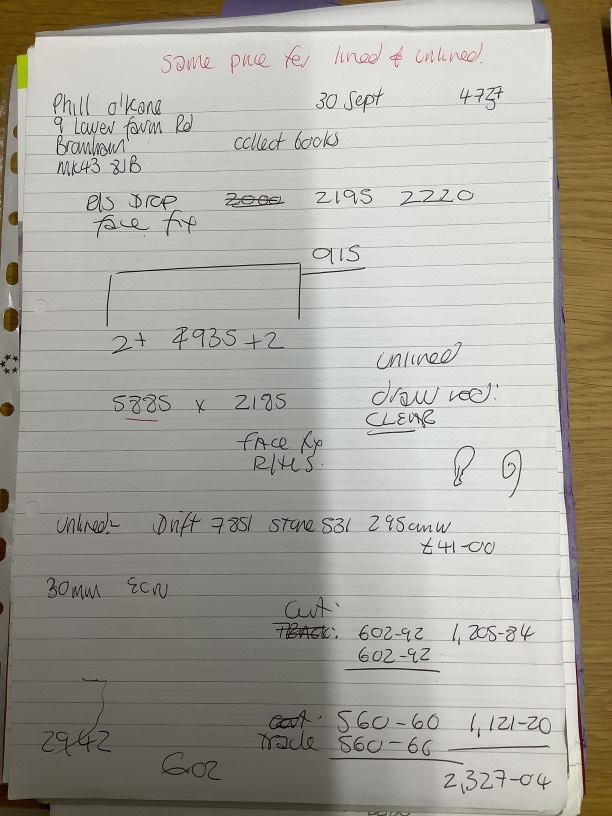 Same price for lined & unlined.
Phill O'Kane 30 Sept
9 Lower farm Rd
collect books
MK43 8JB
DROP 2000 2195 2220
face fix
915
2+ 4935 +2
unlined
5885 x 2185 draw rod:
CLEAR
face fix
R/H/S.
unlined:- Drift 7851 Stone 531 295cmw
£41-00
30mm ECN
Cut:
TRACK: 602-92 1,205-84
602-92
cut: 560-60 1,121-20
track 560-60
2942
602 2,327-04